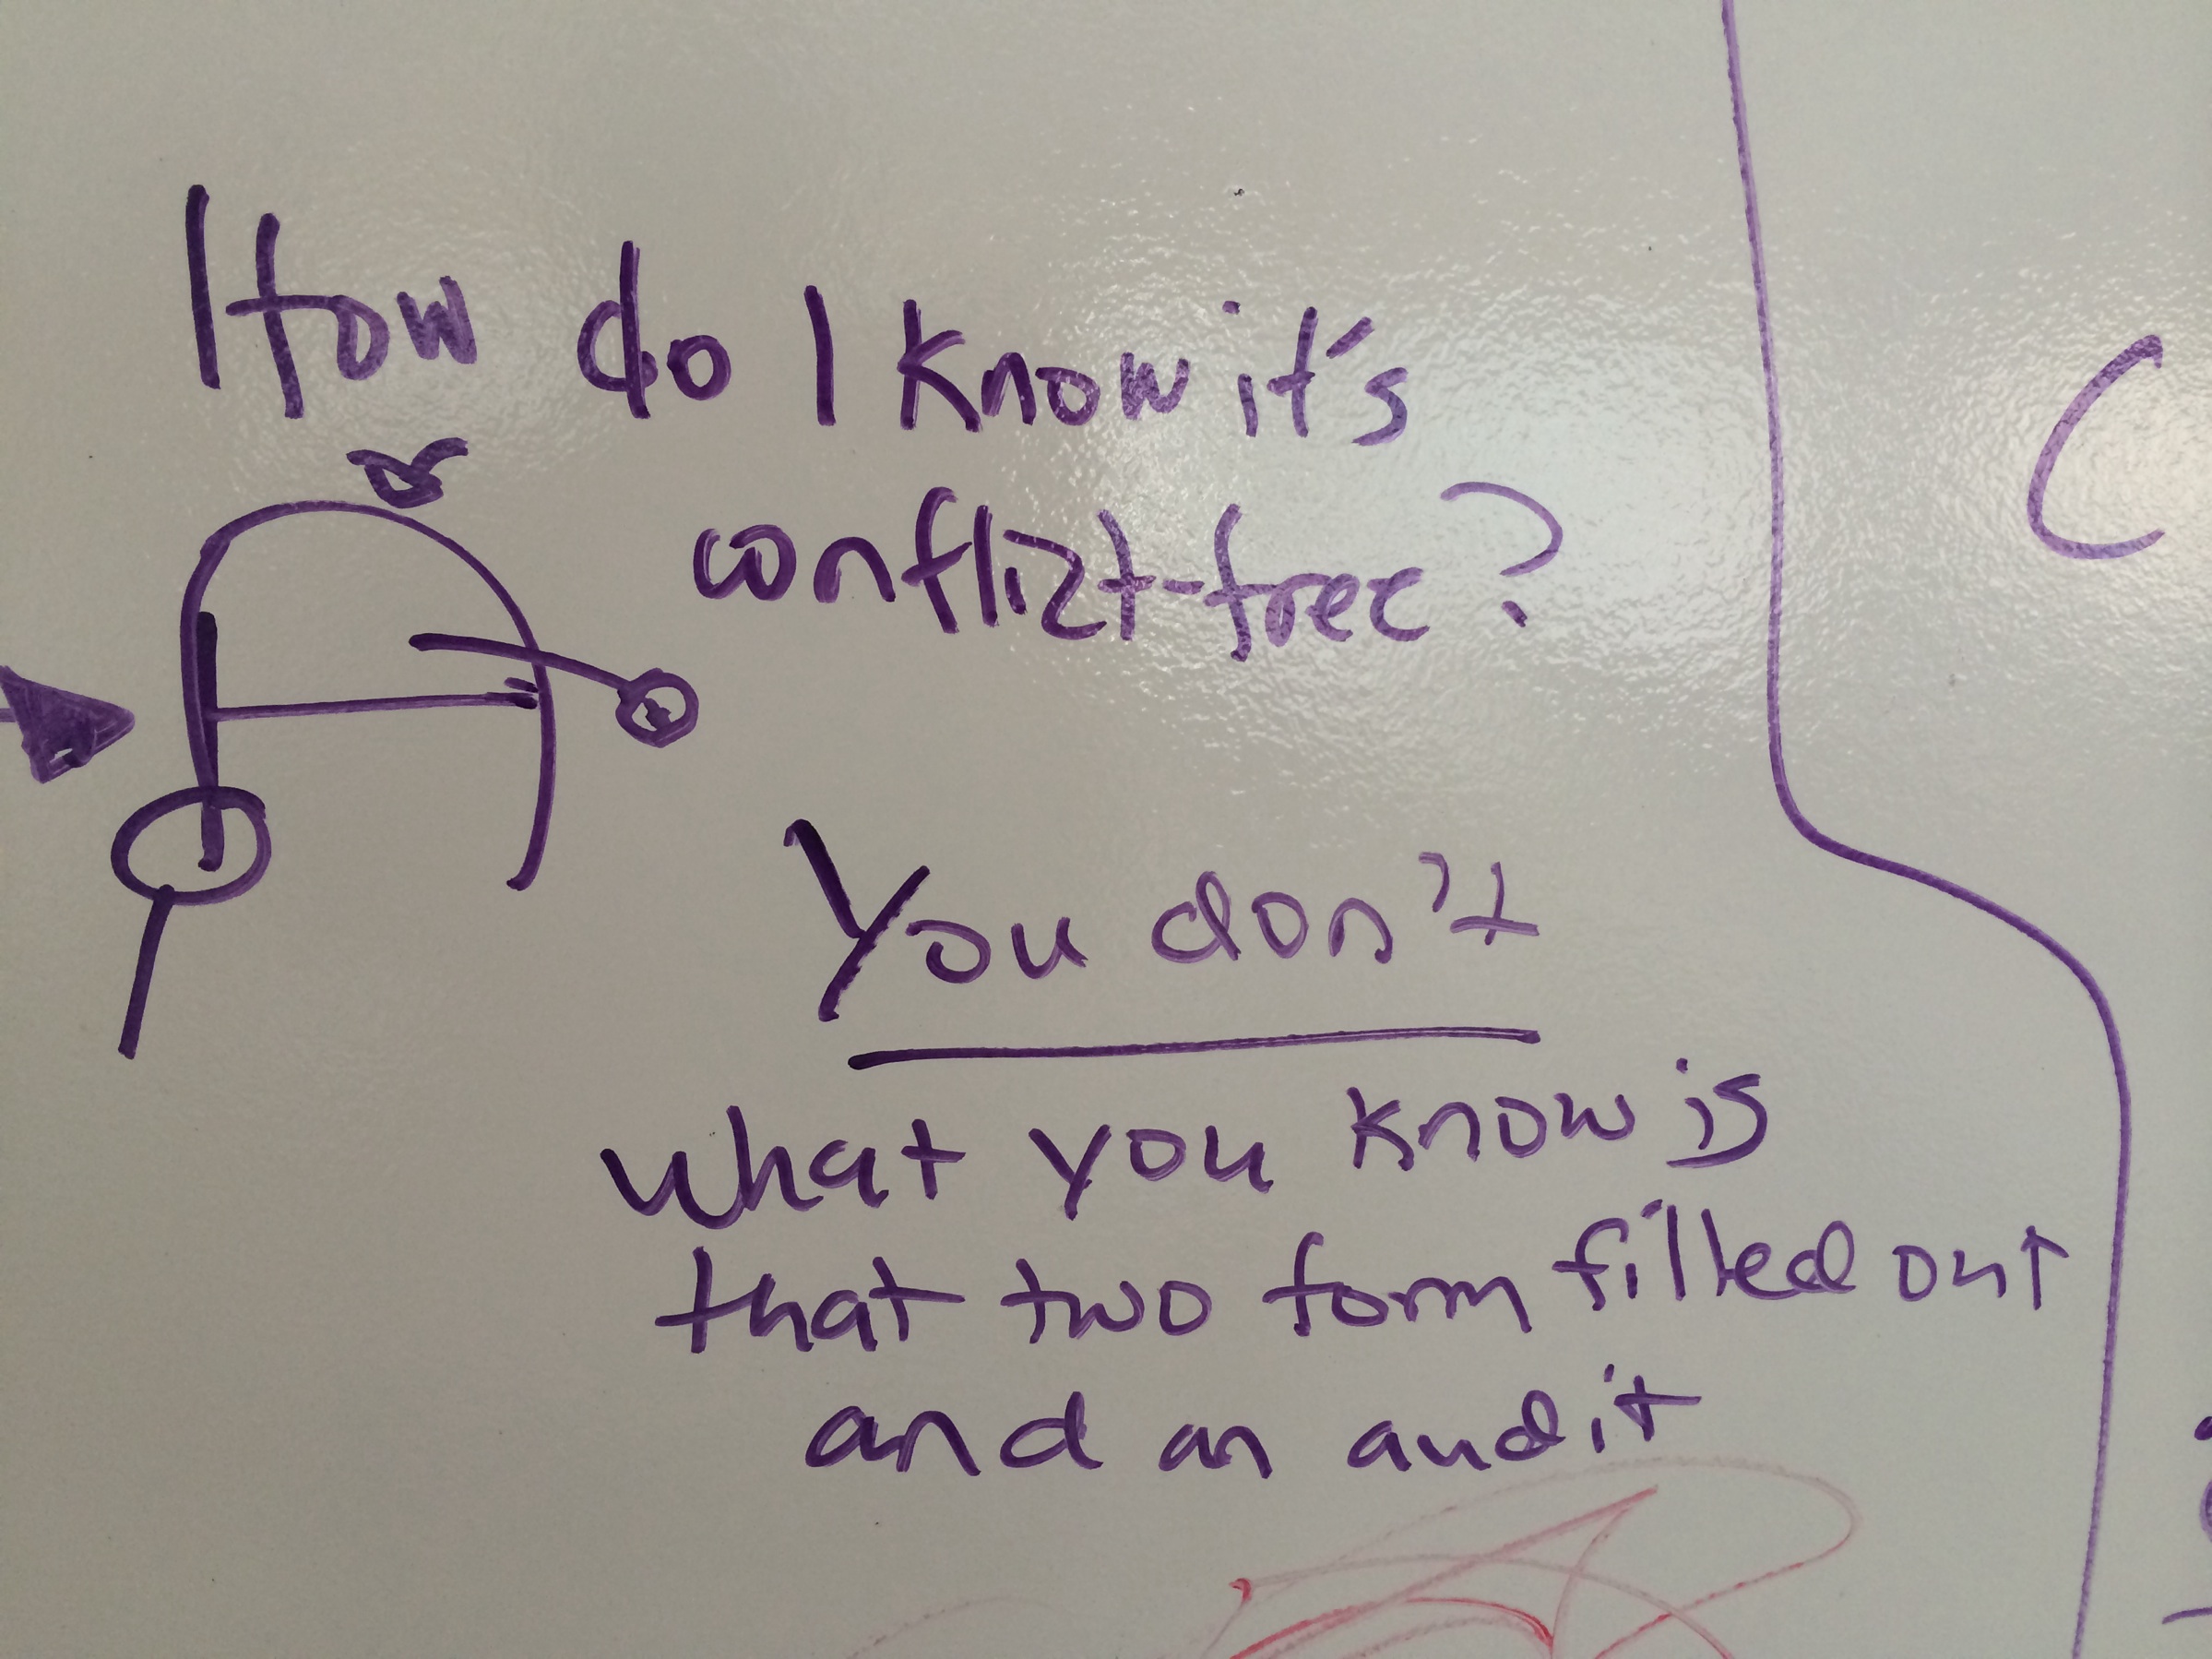 How do I know it's
conflict-free?
You don't
what you know is
that two form filled out
and an audit
C